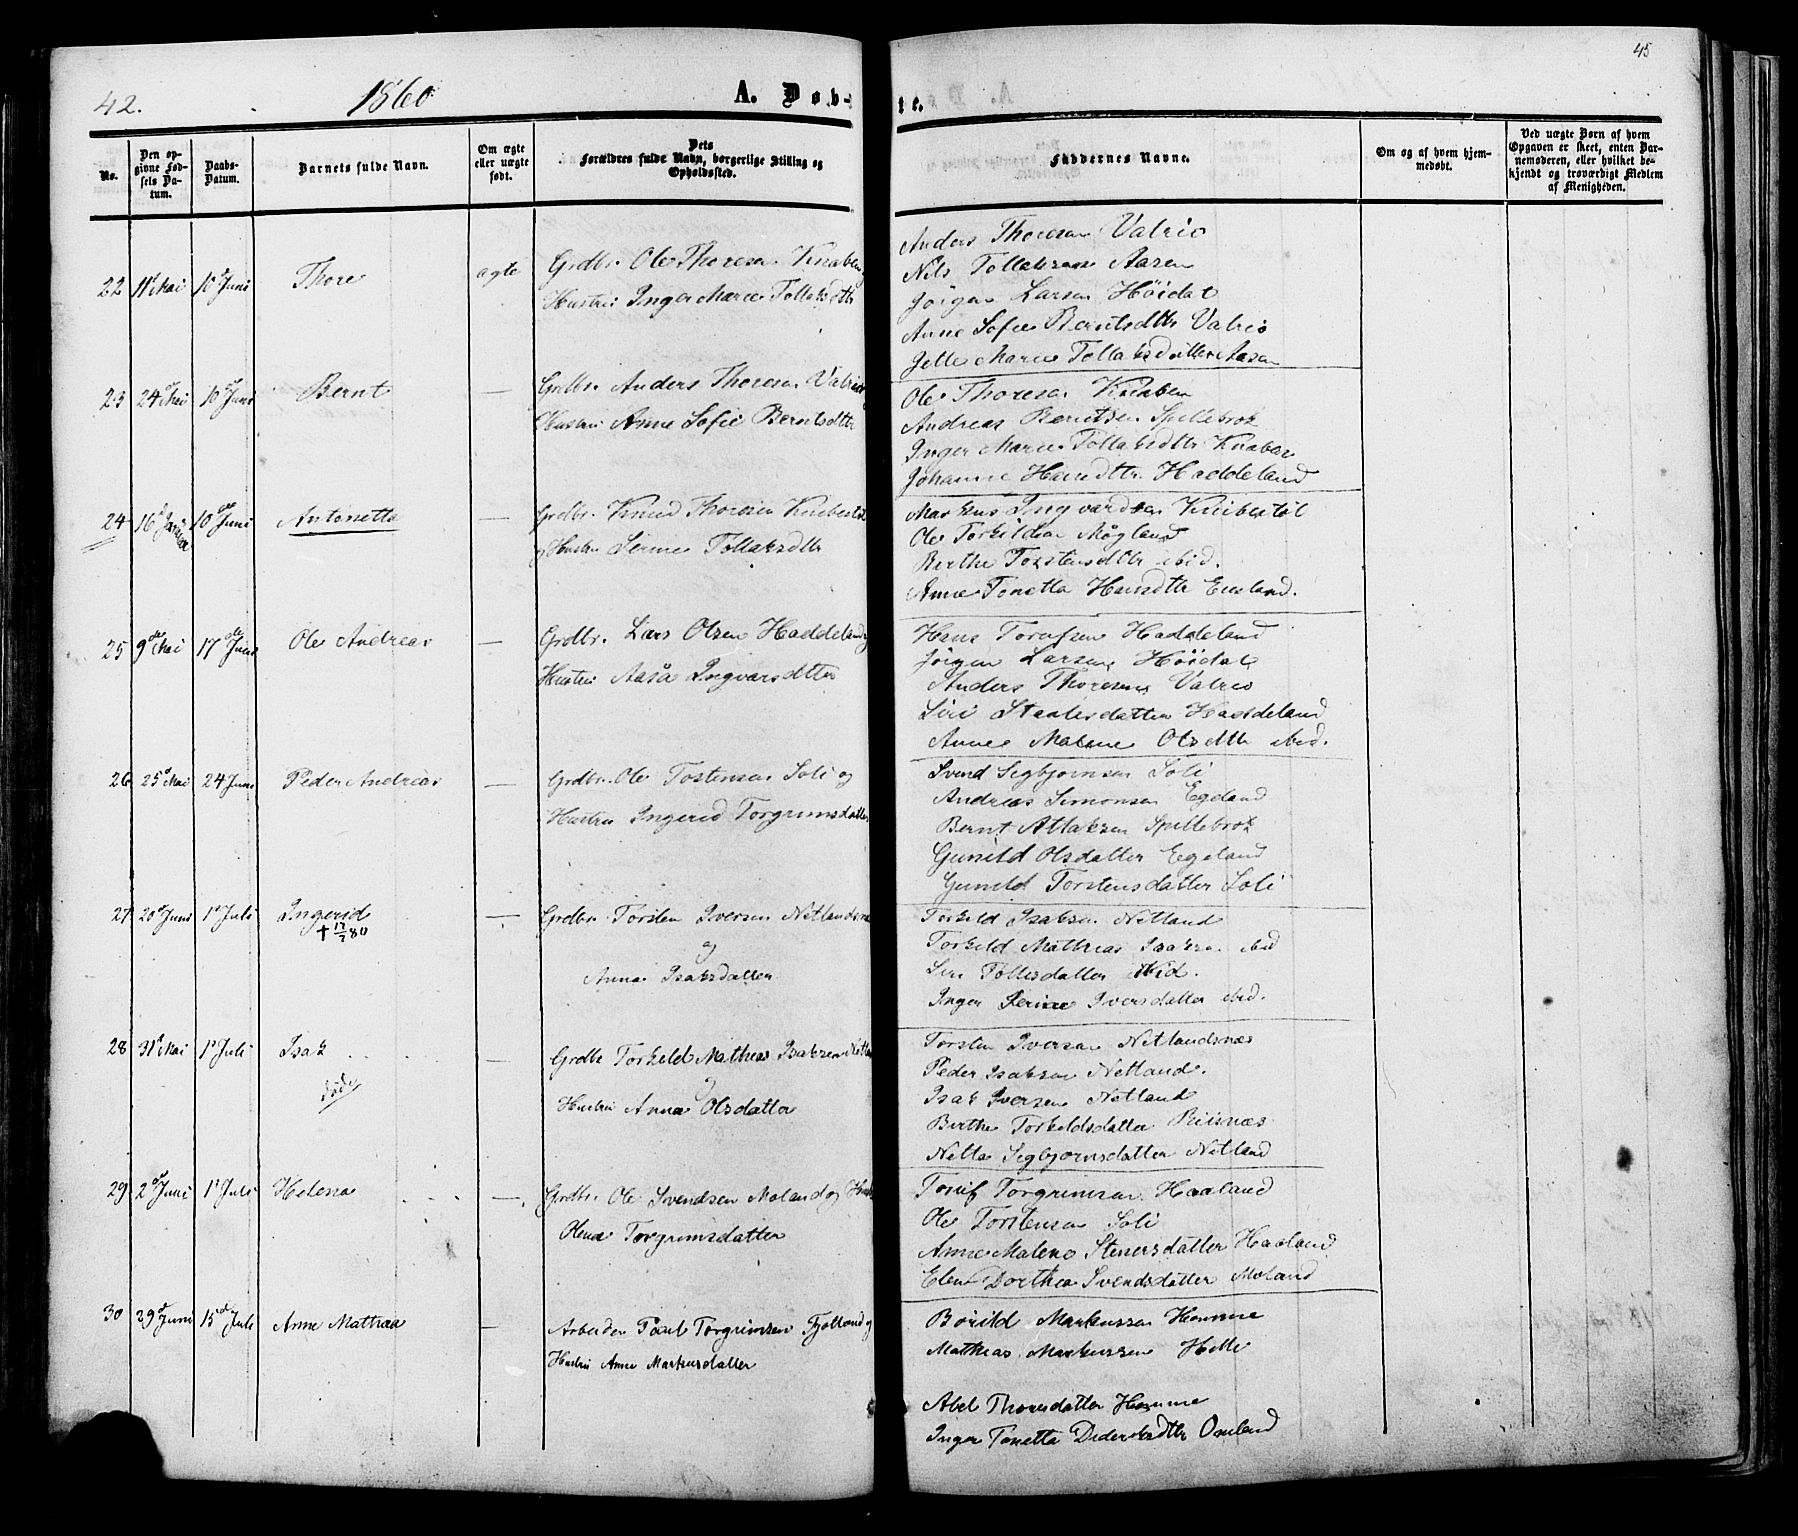 42.
1860
A. Døb-
te.
45
No.
Den opgivne Fødsels Datum.
Daabs-Datum.
Barnets fulde Navn.
Om ægte eller uægte født.
Dets Forældres fulde Navn, borgerlige Stilling og Opholdssted.
Faddernes Navne.
Om og af hvem hjemmedøbt.
Ved uægte Børn af hvem Opgaven er skeet, enten Barnemoderen, eller hvilket bekjendt og troværdigt Medlem af Menigheden.
22 11te Mai 10de Juni Thore ægte Grdbr. Ole Thoresen Knaben og
Hustru Inger Marie Tollaksdttr
Anders Thoresen Valrio
Nils Tollaksen Aasen
Jørgen Larsen Höidal
Anne Sofie Berntsdttr Valrio
Jette Marie Tollaksdatter Aasen
23 24de Mai 10de Juni Bernt — Grdbr. Anders Thoresen Valrio
Hustru Anne Sofie Berntsdttr
Ole Thoresen Knaben
Andreas Berntsen Spillebrok
Inger Marie Tollaksdttr Knaben
Johanne Hansdttr. Haddeland
24 16d Januar 10de Juni Antonette — Grdbr. Knud Thoresen
og Hustru Serine Tollaksdttr
Markus Ingvardsen
Ole Torkildsen Møgland
Berthe Torstensdttr ibid.
Anne Tonetta Hansdttr Eieland.
25 9de Mai 17de Juni Ole Andreas — Grdbr. Lars Olsen Haddeland og
Hustru Aasa Ingvarsdtter
Hans Torufsen Haddeland
Jørgen Larsen Höidal
Anders Thoresen Valrio
Siri Staalesdatter Haddeland
Anne Malene Olsdttr ibid.
26 25d Mai 24 Juni Peder Andreas — Grdbr. Ole Tostensen Soli og
Hustru Ingerid Torgrimsdatter
Svend Segbjørnsen Soli
Andreas Simonsen Egeland
Bernt Atlaksen Spillebrok
Gunild Olsdatter Egeland
Gunild Torstensdatter Soli
27 20d Juni 1st Juli Ingerid — Grdbr. Torsten Iversen Netlandsnæs
† 17/7 80
og
Anna Isaksdatter
Torkild Isaksen Netland
Torkeld Mathias Isaksen ibid
Siri Tollisdatter ibid.
Inger Serine Iversdatter ibid.
28 31d Mai 1st Juli Isak — Grdbr Torkeld Mathias Isaksen Netland
død
og
Hustru Anna Olsdatter
Torsten Iversen Netlandsnæs
Peder Isaksen Netland.
Isak Iversen Netland
Berthe Torkeldsdatter Risnæs
Netta Segbjørnsdatter Netland
29 2d Juni 1st Juli Helena — Grdbr. Ole Svendsen Moland og Hust
Olena Torgrimsdatter
Tonif Torgrimsen Haaland
Ole Torstensen Soli
Anne Malene Stenersdatter Haaland
Elen Dorthea Svendsdatter Moland
30 29d Juni 15d Juli Anne Mathea — Arbeider Paul Torgrimsen Fjolland og
Hustru Anne Markusdatter
Bovild Markussen Homme
Matthias Markussen Helle
Abel Thoresdatter Homme
Inger Tonetta Dideriksdttr Omland